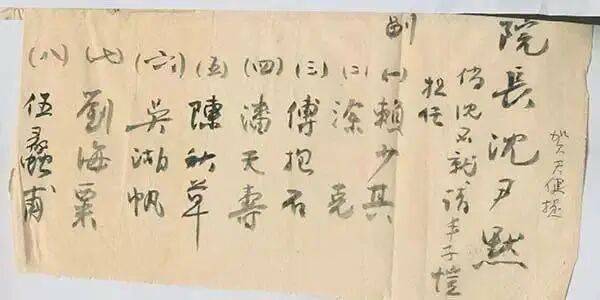 院長沈尹默
倘沈不就請丰子愷
担任
賀天健提
副
(一)賴少其
(二)涂克
(三)傅抱石
(四)潘天壽
(五)陳秋草
(六)吳湖帆
(七)劉海粟
(八)伍蠡甫